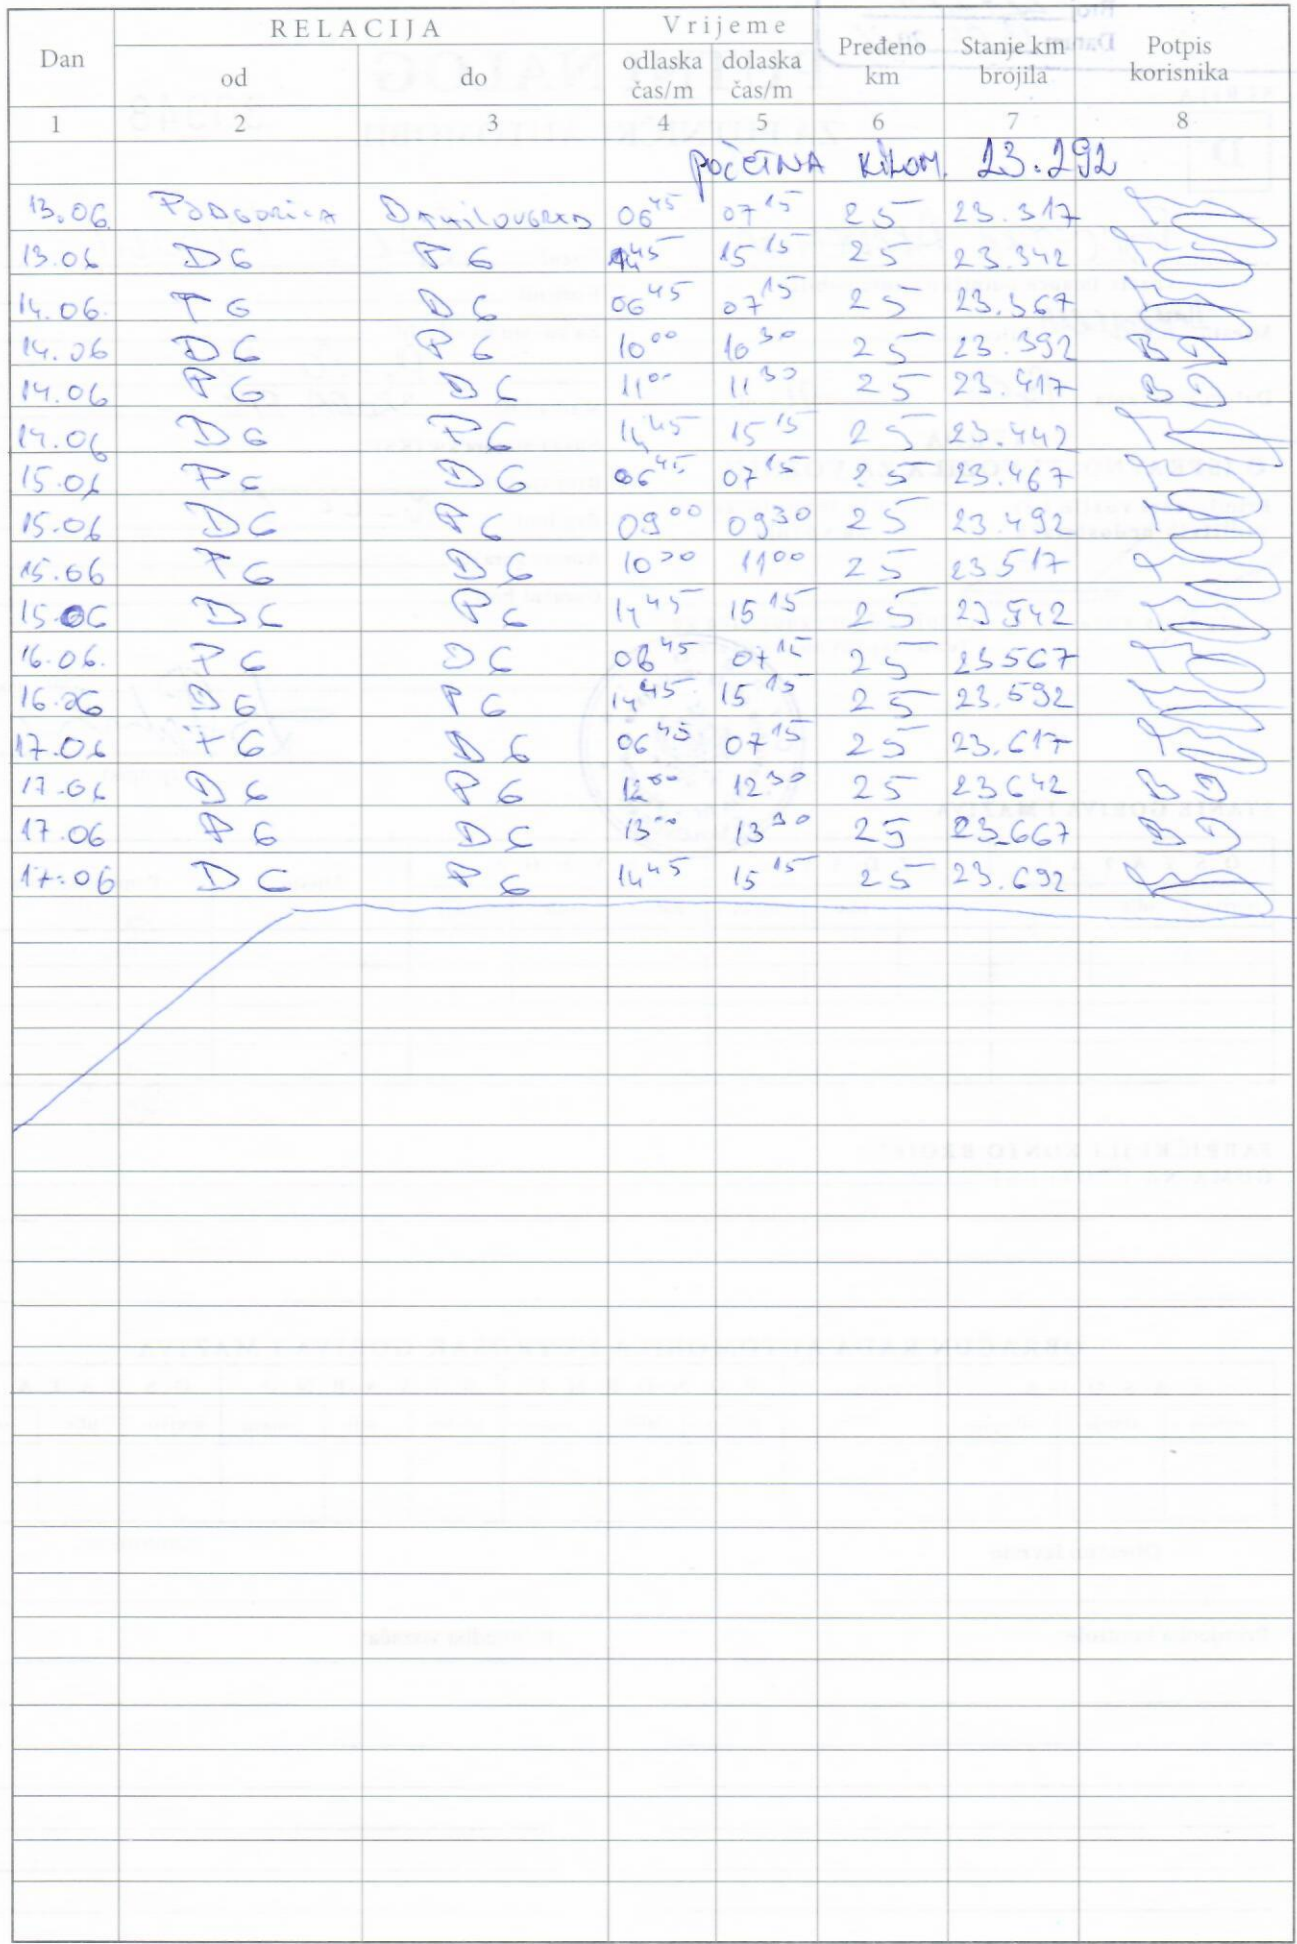 Dan RELACIJA Vrijeme Pređeno km Stanje km brojila Potpis korisnika
od do odlaska čas/m dolaska čas/m
1 2 3 4 5 6 7 8
POČETNA KILOM. 23.292
13.06 PODGORICA DANILOVGRAD 06 45 07 15 25 23.317
13.06 DG PG 14 45 15 15 25 23.342
14.06. PG DG 06 45 07 15 25 23.367
14.06 DG PG 10 00 10 30 25 23.392 BD
14.06 PG DG 11 00 11 30 25 23.417 BD
14.06 DG PG 14 45 15 15 25 23.442
15.06 PG DG 06 45 07 15 25 23.467
15.06 DG PG 09 00 09 30 25 23.492
15.06 PG DG 10 30 11 00 25 23517
15.06 DG PG 14 45 15 15 25 23542
16.06. PG DG 06 45 07 15 25 23567
16.06 DG PG 14 45 15 15 25 23.592
17.06 PG DG 06 45 07 15 25 23.617
17.06 DG PG 12 00 12 30 25 23642 BD
17.06 PG DG 13 00 13 30 25 23.667 BD
17.06 DG PG 14 45 15 15 25 23.692